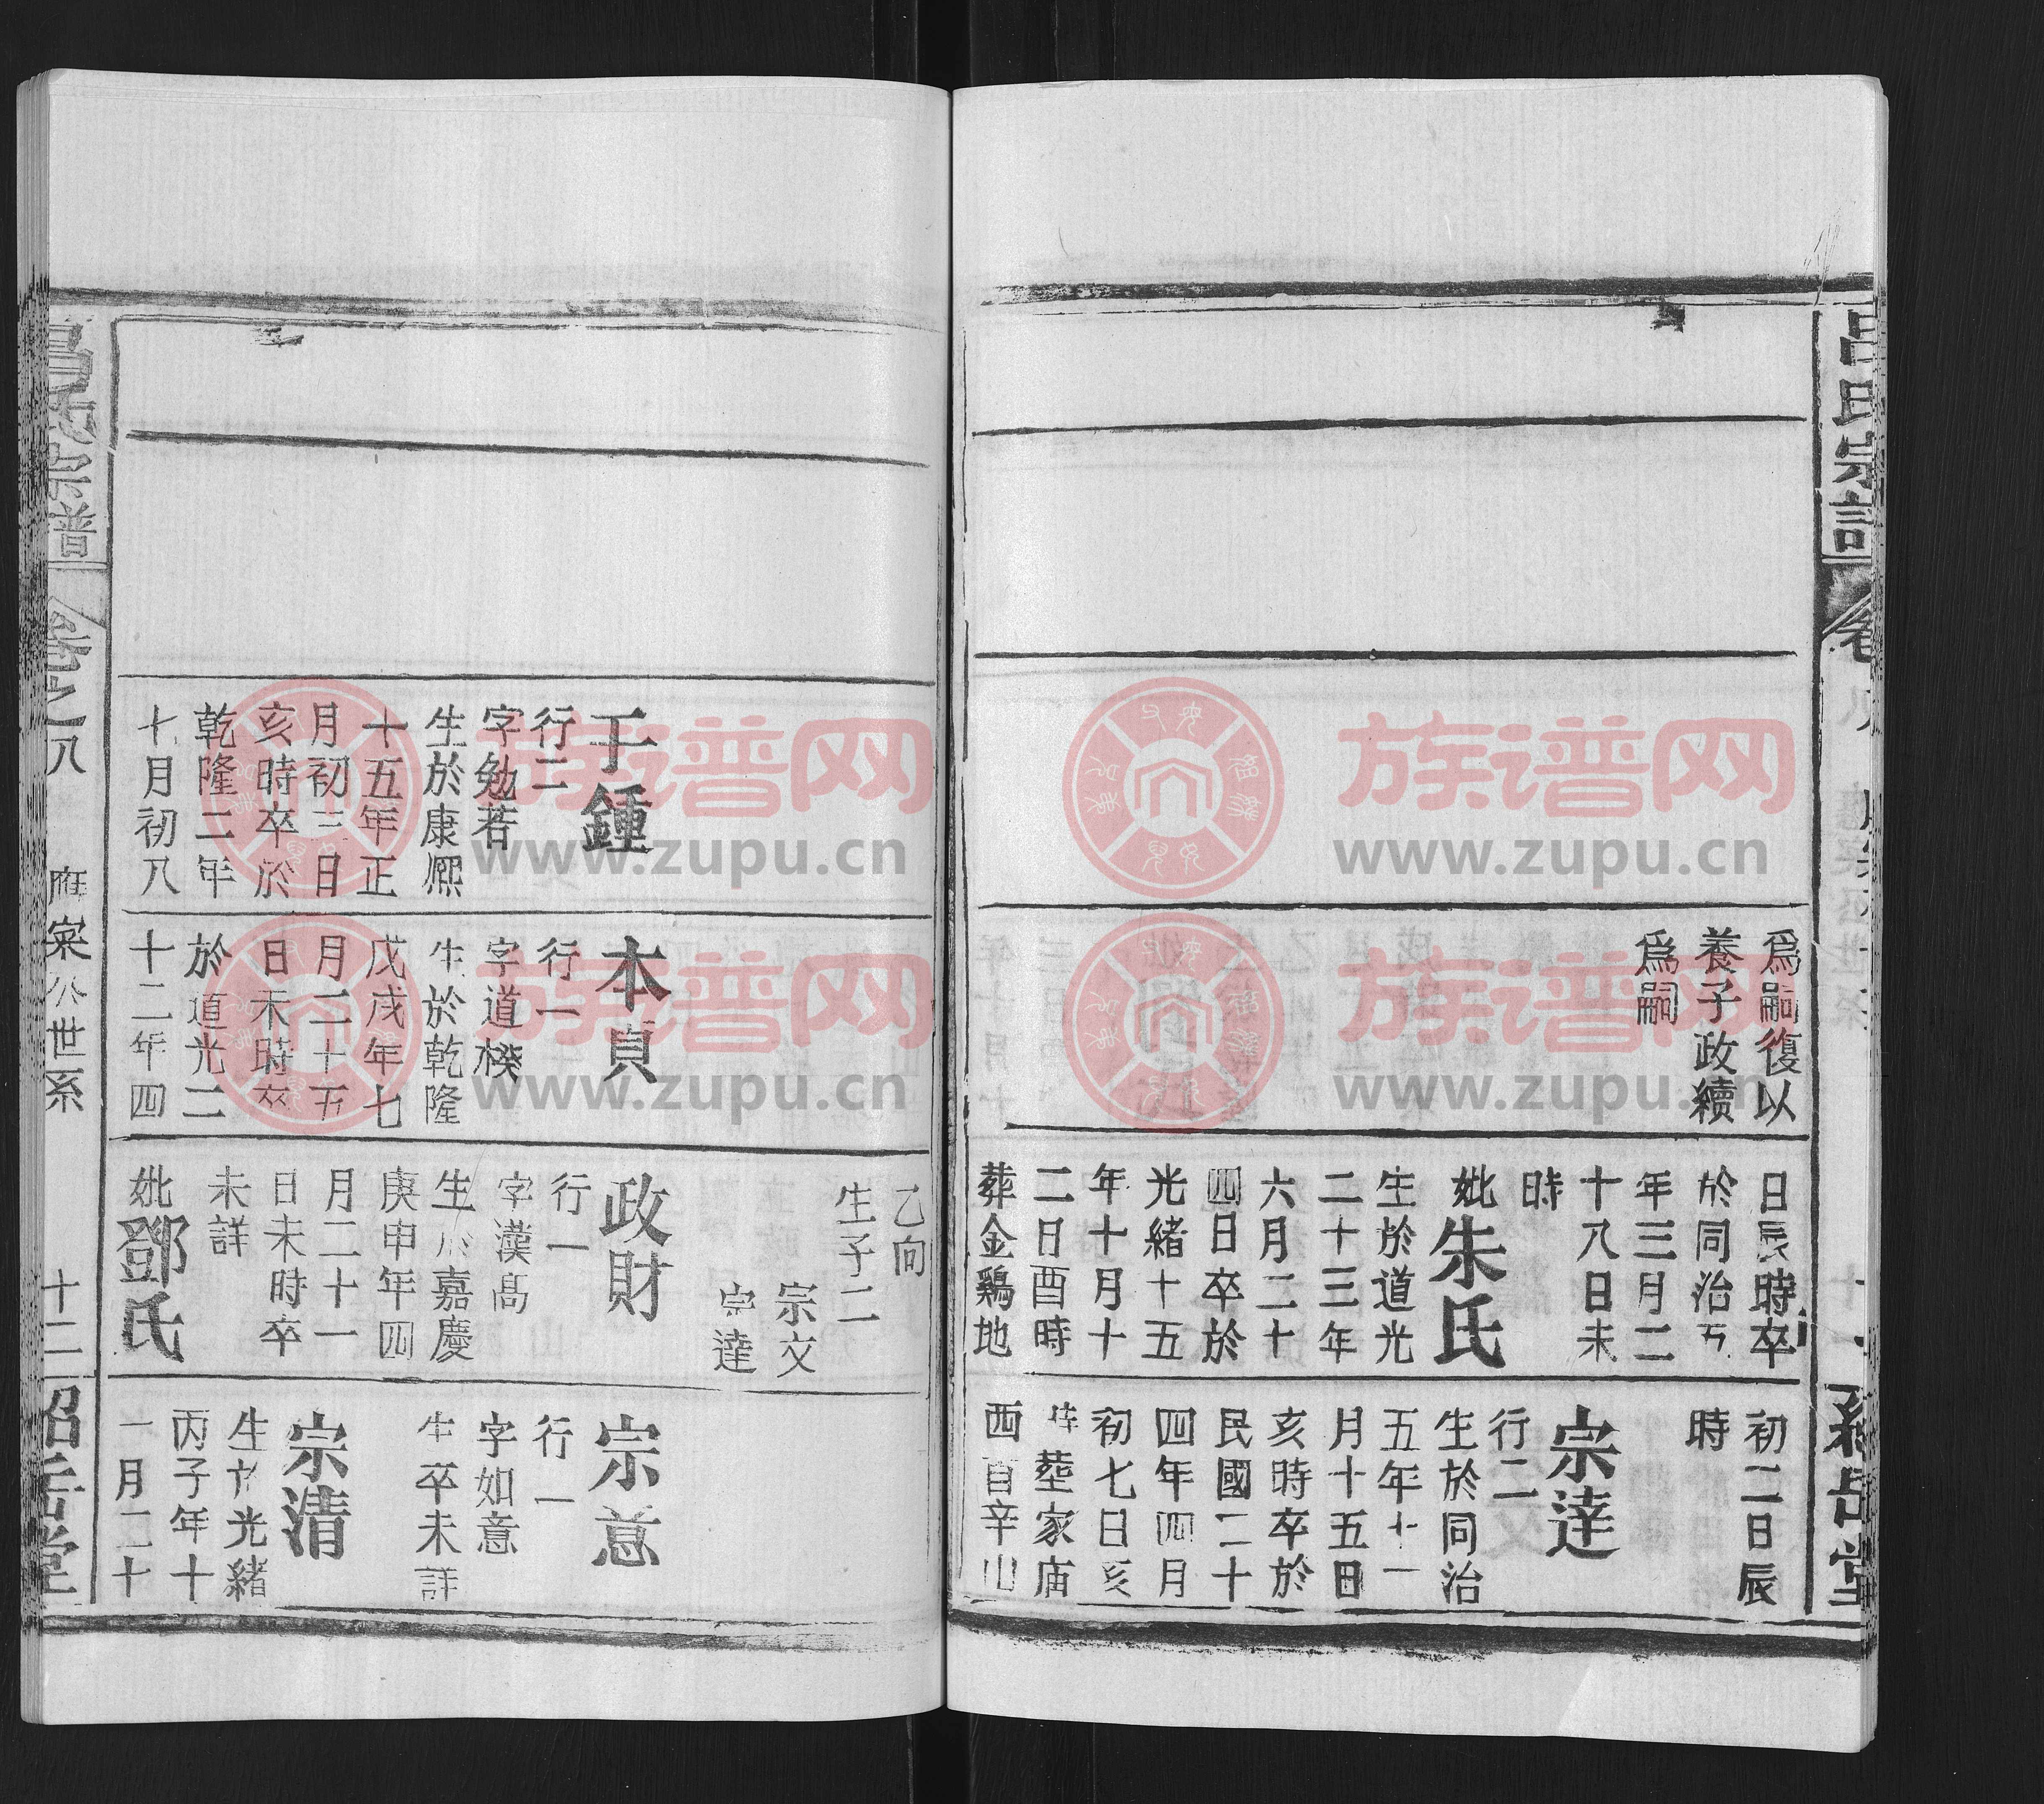 為嗣復以
養子政續
為嗣
日辰時卒
於同治五
年三月二
十八日未
時
妣朱氏
生於道光
二十三年
六月二十
四日卒於
光緒十五
年十月十
二日酉時
葬金鷄地
初二日辰
時
宗達
行二
生於同治
五年十一
月十五日
亥時卒於
民國二十
四年四月
初七日亥
時塟家庙
西首辛山
于鍾
行二
字勉若
生於康熙
十五年正
月初三日
亥時卒於
乾隆二年
七月初八
本貞
行一
字道機
生於乾隆
戊戌年七
月二十五
日未時卒
於道光二
十二年四
乙向
生子二
宗文
宗達
政財
行一
字漢髙
生於嘉慶
庚申年四
月二十一
日未時卒
未詳
妣鄧氏
宗意
行一
字如意
生卒未詳
宗清
生於光緒
丙子年十
一月二十
宗譜
卷之八
公世系
十二
族谱网
www.zupu.cn
族谱网
www.zupu.cn
族谱网
www.zupu.cn
族谱网
www.zupu.cn